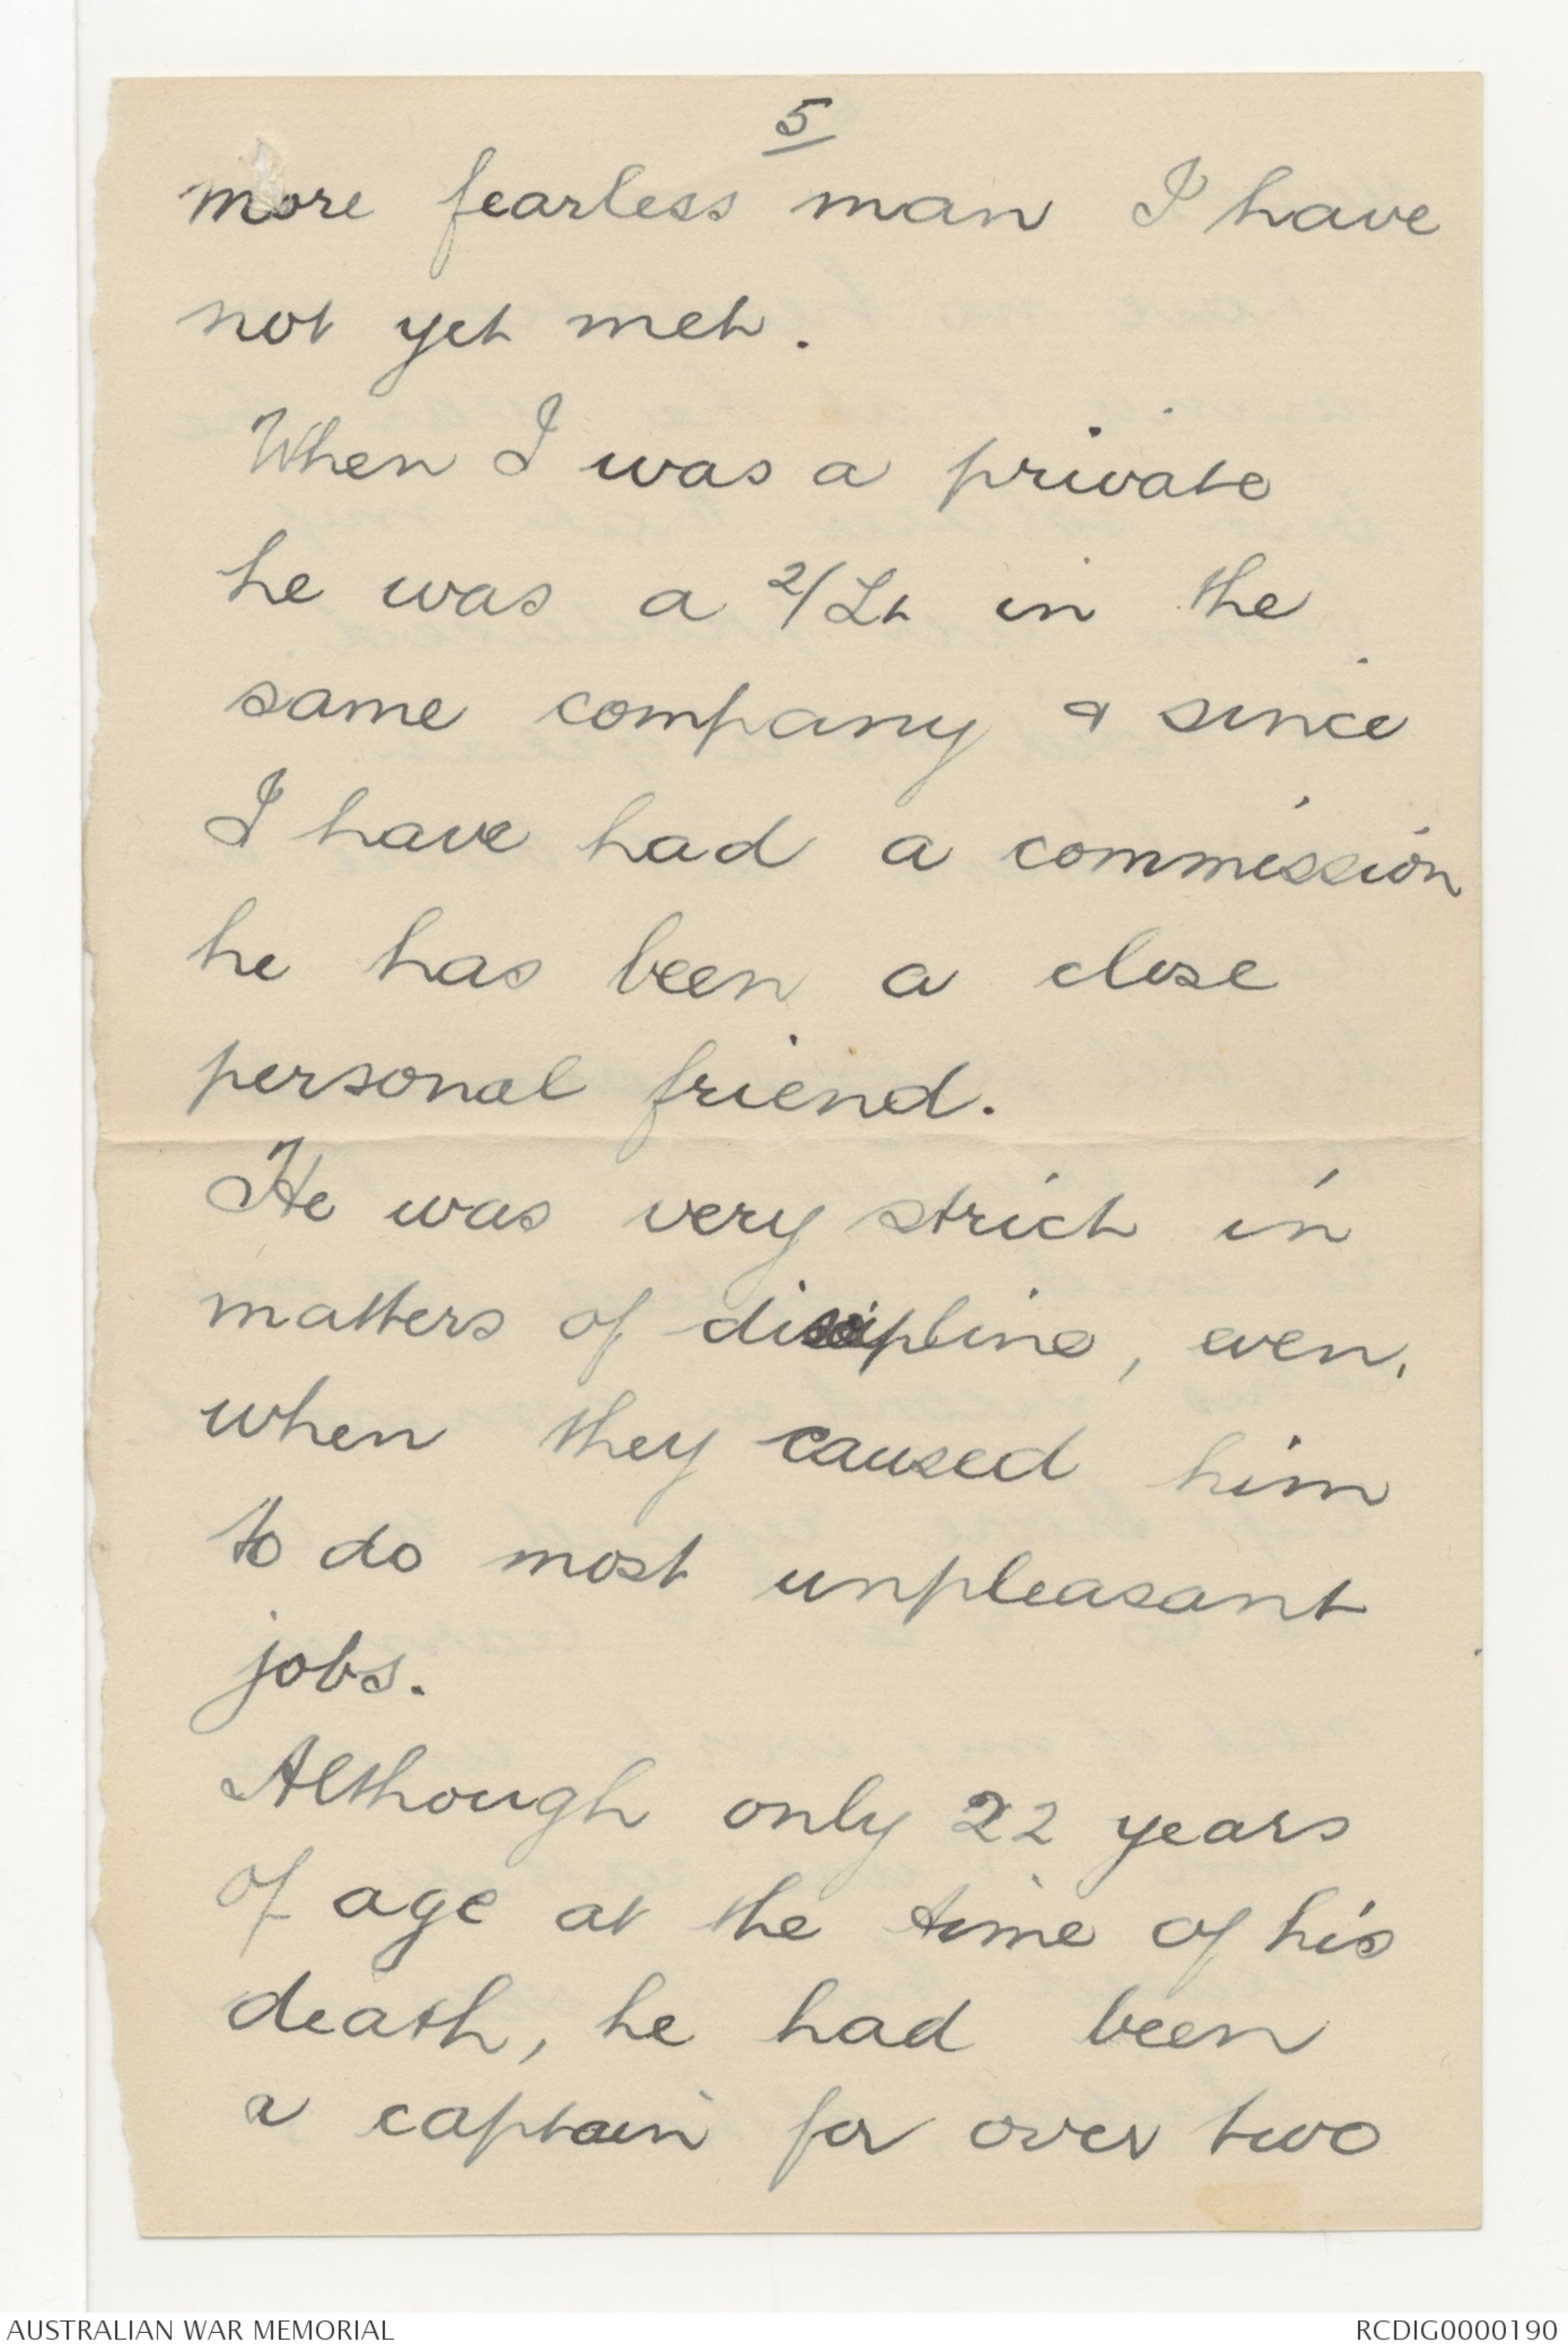 5
more fearless man I have
not yet met.
When I was a private
he was a 2/Lt in the
same company & since
I have had a commission
he has been a close
personal friend.
He was very strict in
matters of discipline, even,
when they caused him
to do most unpleasant
jobs.
Although only 22 years
of age at the time of his
death, he had been
a captain for over two
AUSTRALIAN WAR MEMORIAL
RCDIG0000190